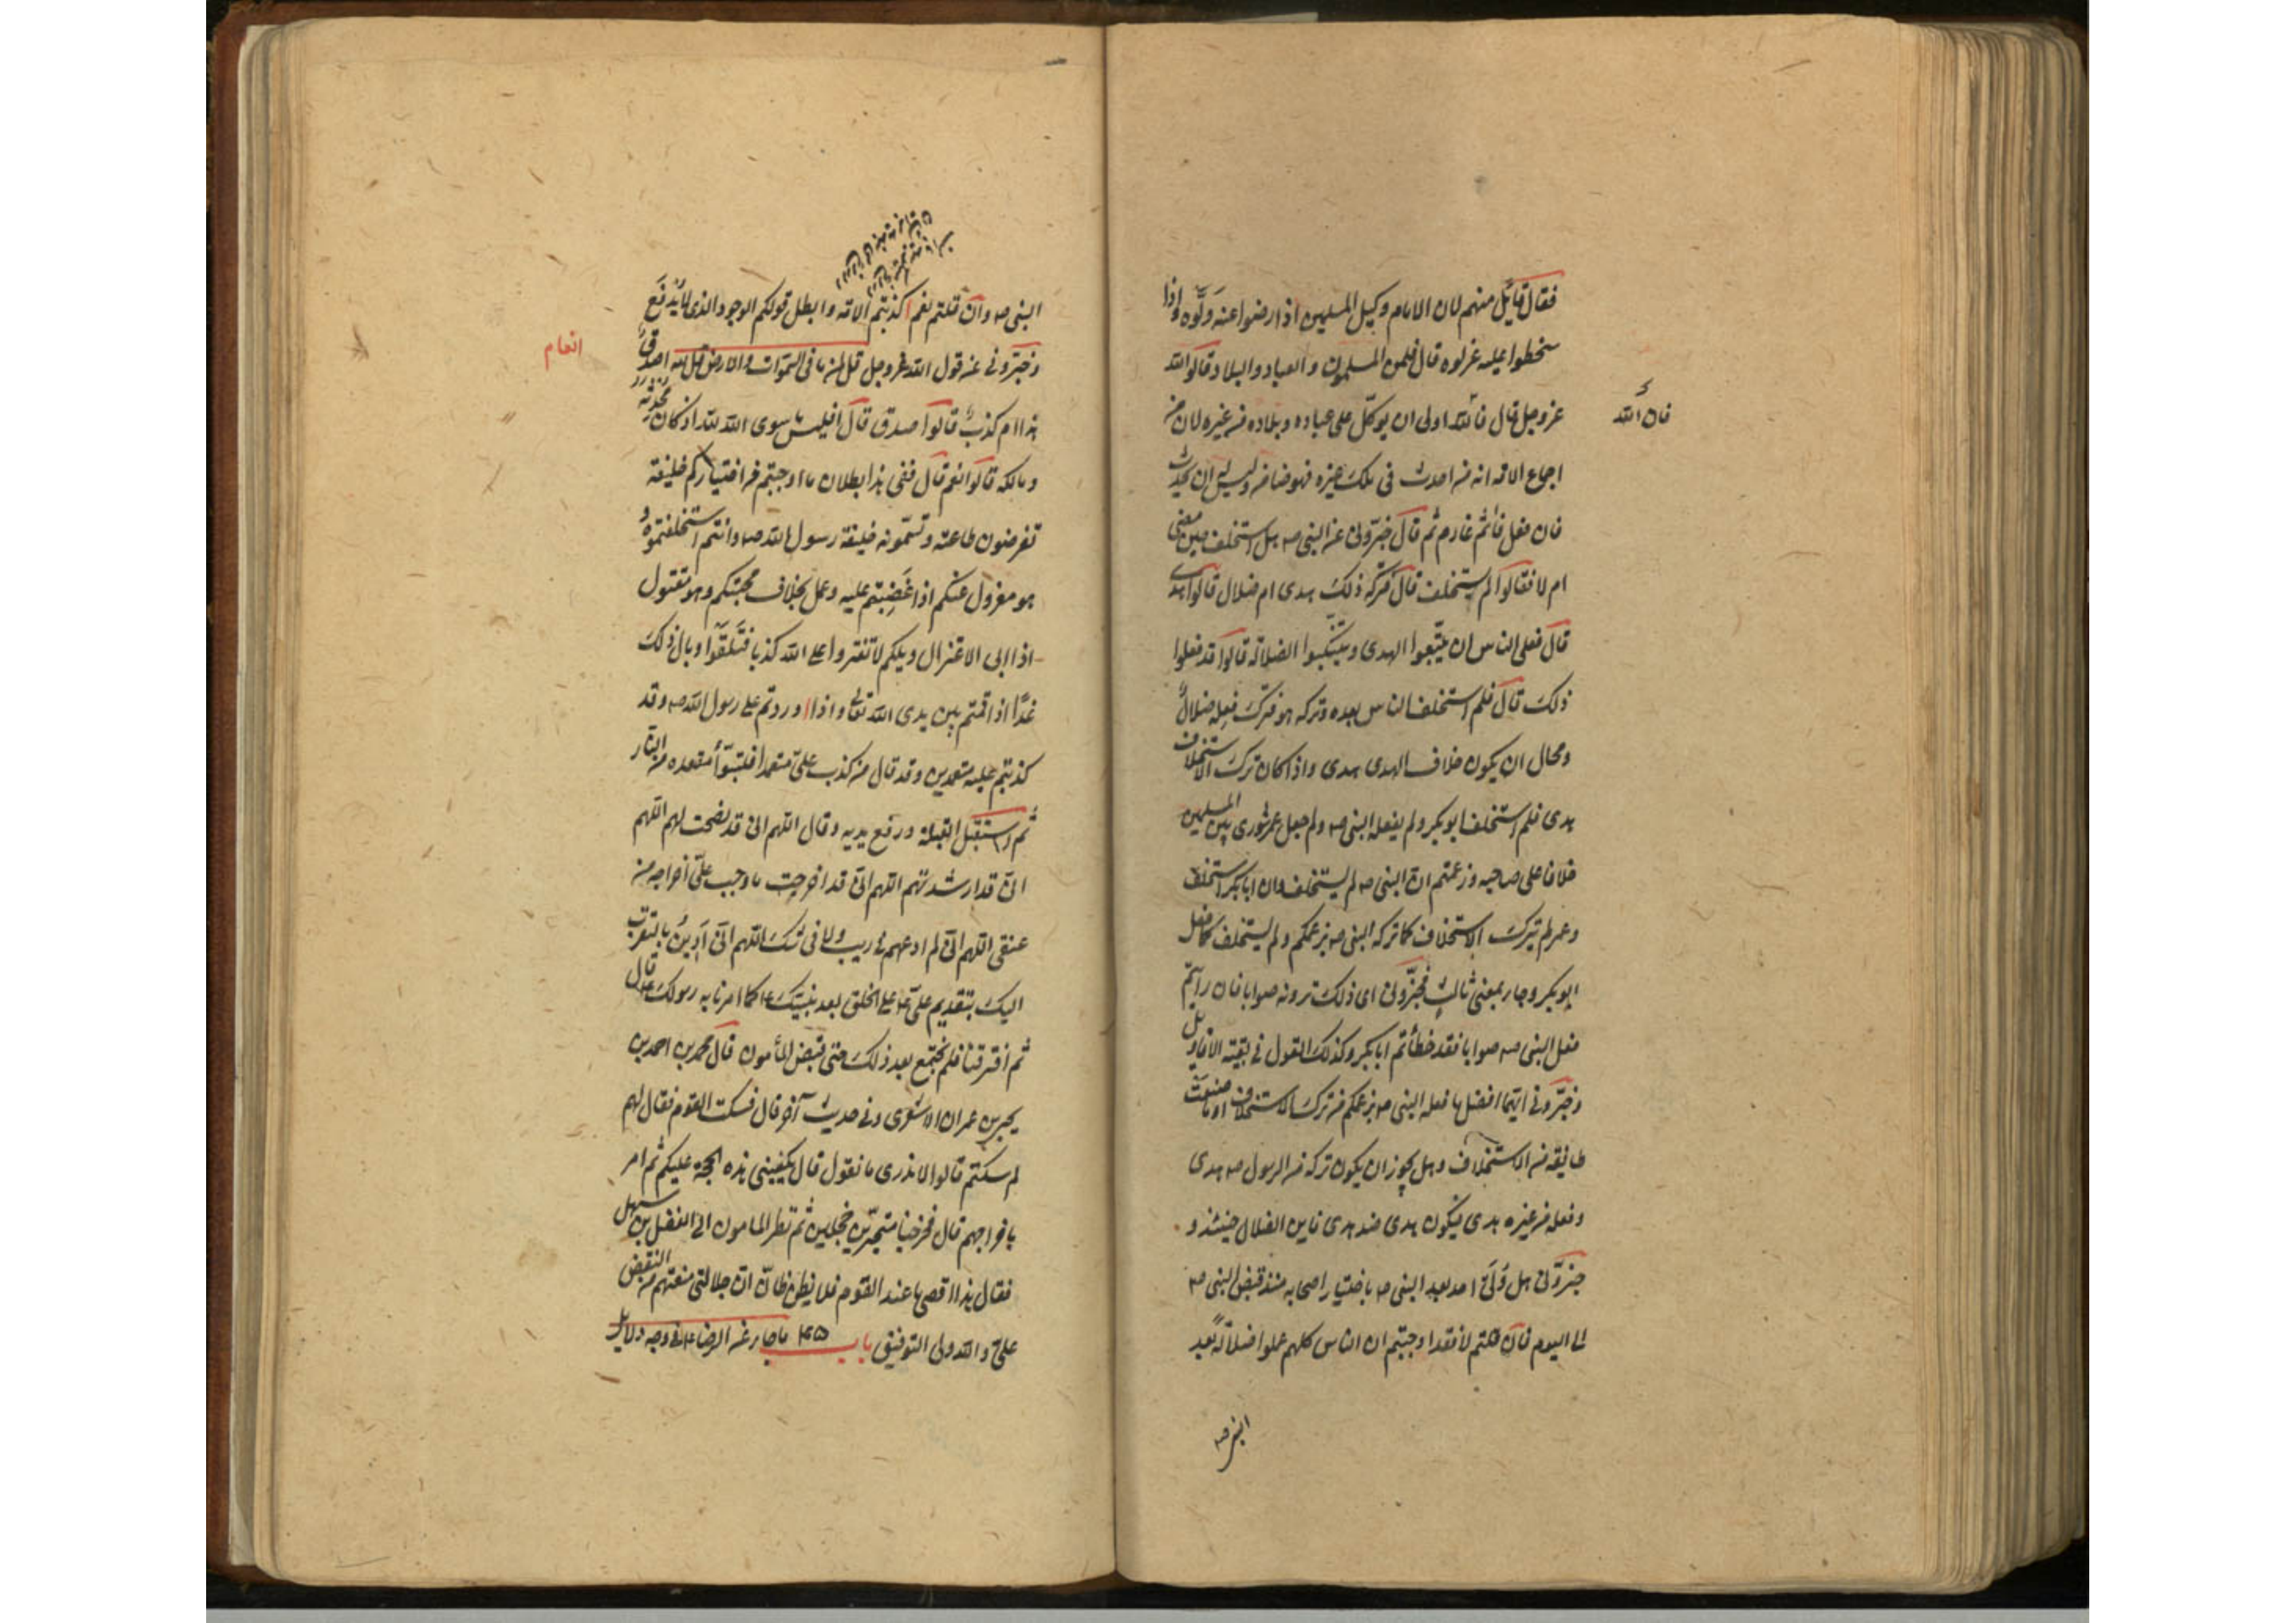 فقال قائل منهم لان الامام وكيل المسلمين اذا رضوا عنه ولّوه واذا
سخطوا عليه عزلوه قال فلمن المسلمون والعباد والبلاد قالوا لله
عز وجل قال فالله اولى ان يوكّل على عباده وبلاده من غيره لان من
فان الله
اجماع الامة انه من احدث فى ملك غيره فهو ضامن وليس له ان يحدث
فان فعل فآثم غارم ثم قال خبّرونى عن النبى صہ هل استخلف حين مضى
ام لا فقالوا لم يستخلف قال فتركه ذلك هدى ام ضلال قالوا هدى
قال فعلى الناس ان يتّبعوا الهدى ويتنكبوا الضلالة قالوا قد فعلوا
ذلك قال فلم استخلف الناس بعده وتركه هو فترك فعله ضلالٌ
ومحال ان يكون خلاف الهدى هدى واذا كان ترك الاستخلاف
هدى فلم استخلف ابو بكر ولم يفعله النبى صہ ولم جعل عمر شورى بين المسلمين
خلافا على صاحبه وزعمتم ان النبى صہ لم يستخلف وان ابا بكر استخلف
وعمر لم يترك الاستخلاف كما تركه النبى صہ بزعمكم ولم يستخلف كما فعل
ابو بكر وجاء بمعنى ثالث فخبّرونى اى ذلك ترونه صوابا فان رايتم
فعل النبى صہ صوابا فقد خطأتم ابا بكر وكذلك القول فى بقية الاقاويل
وخبّرونى ايّما افضل ما فعله النبى صہ بزعمكم من ترك الاستخلاف او ما صنعت
طائفة من الاستخلاف وهل يجوز ان يكون تركه من الرسول صہ هدى
وفعله من غيره هدى فيكون هدى ضد هدى فاين الضلال حينئذ و
خبرونى هل ولّى احد بعد النبى صہ باختيار اصحابه منذ قبض النبى صہ
الى اليوم فان قلتم لا فقد اوجبتم ان الناس كلهم عملوا ضلالة بعد
النبى صہ
النبى صہ وان قلتم نعم اكذبتم الامة وابطل قولكم الوجود الذى لا يُدفَع
وخبّرونى عن قول الله عز وجل قل لمن ما فى السموات والارض قل لله اصدق
انعام
هذا ام كذب قالوا صدق قال افليس ما سوى الله لله اذ كان محدثه
ومالكه قالوا نعم قال ففى هذا بطلان ما اوجبتم من اختياركم خليفة
تفرضون طاعته وتسمّونه خليفة رسول الله صہ وانتم استخلفتموه و
هو معزول عنكم اذا غضبتم عليه وعمل بخلاف محبتكم وهو مقتول
اذا ابى الاعتزال ويلكم لا تفتروا على الله كذبا فتلقّوا وبال ذلك
غدًا اذا قمتم بين يدى الله تعالى واذا وردتم على رسول الله صہ وقد
كذبتم عليه متعمدين وقد قال من كذب علىّ متعمدا فليتبوّأ مقعده من النار
ثم استقبل القبلة ورفع يديه وقال اللهم انى قد نصحت لهم اللهم
انى قد ارشدتهم اللهم انى قد اخرجت ما وجب علىّ اخراجه من
عنقى اللهم انى لم ادعهم فى ريب ولا فى شك اللهم انى ادين بالتقرب
اليك بتقديم علىّ على الخلق بعد نبيك كما امرنا به رسولك قال
ثم افترقنا فلم نجتمع بعد ذلك حتى قبض المأمون قال محمد بن احمد بن
يحيى بن عمران الاشعرى وفى حديث آخر قال فسكت القوم فقال لهم
لم سكتم قالوا لا ندرى ما نقول قال يكفينى هذه الحجة عليكم ثم امر
باخراجهم قال فخرجنا متحيّرين خجلين ثم نظر المامون الى الفضل بن سهل
فقال هذا اقصى ما عند القوم فلا يظن ظانّ ان جلالتى منعتهم من النقض
علىّ والله ولى التوفيق باب ٤٥ ما جاء عن الرضا فى وجه دلائل